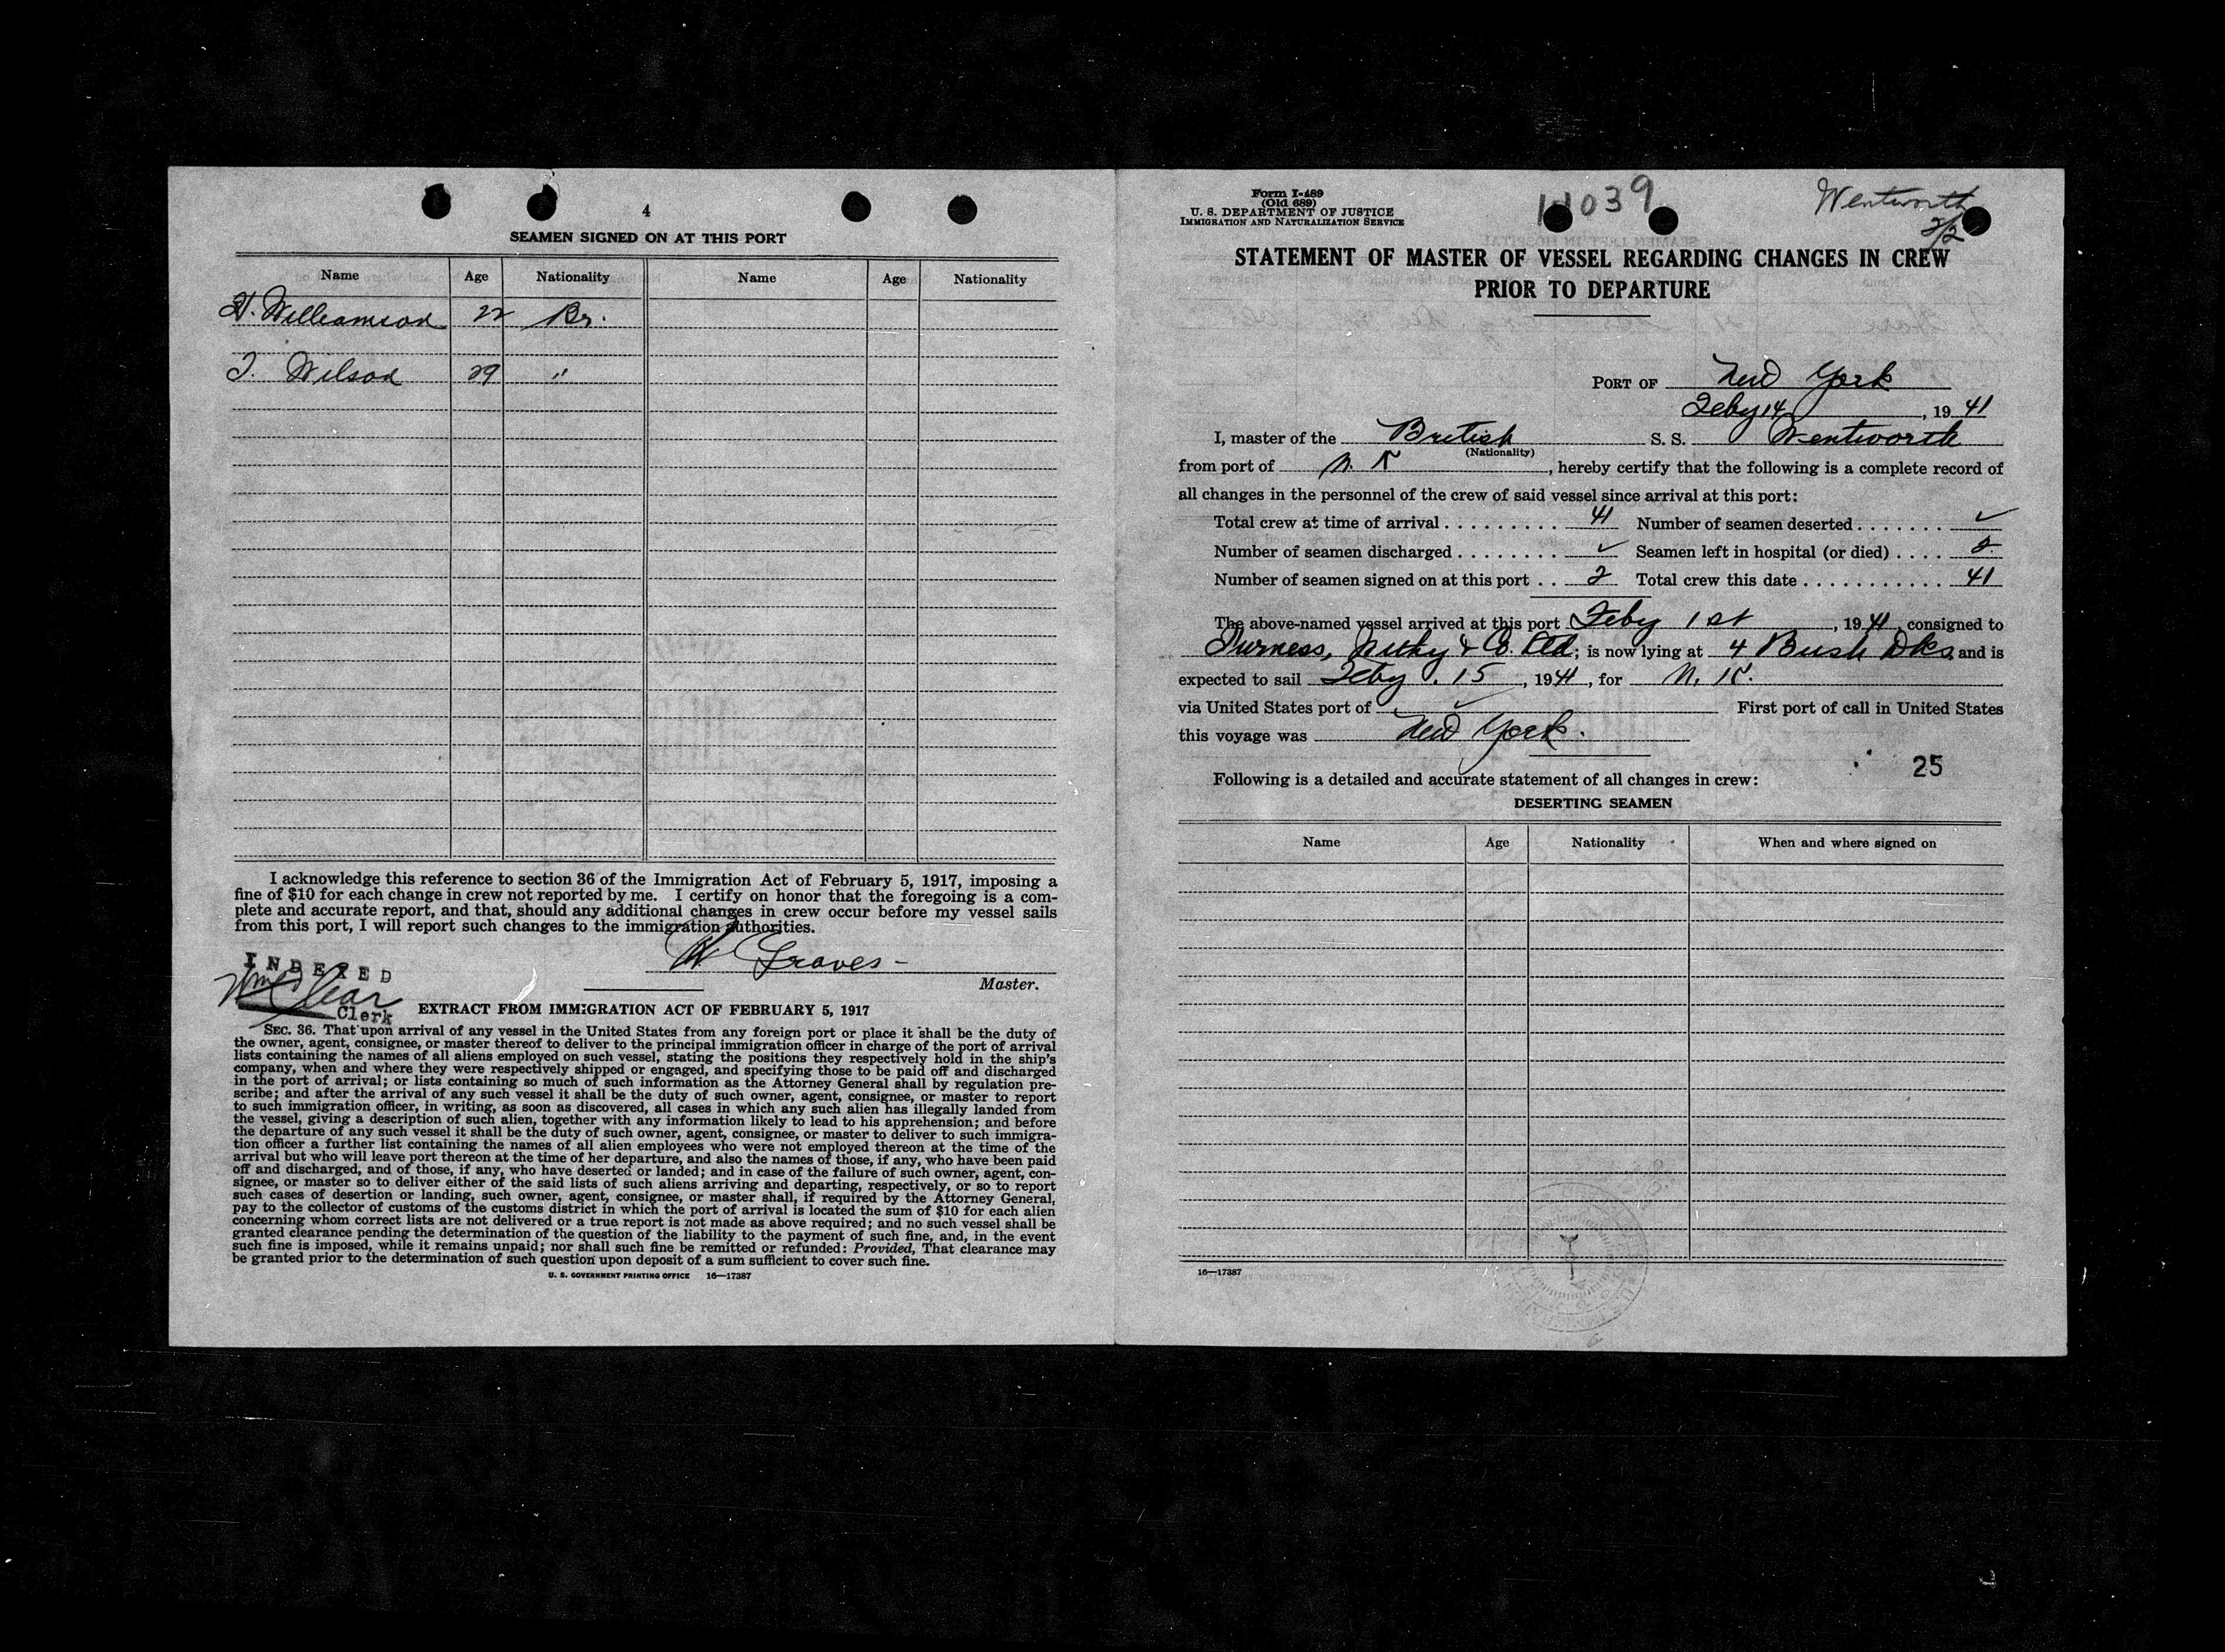 4
SEAMEN SIGNED ON AT THIS PORT
Name Age Nationality Name Age Nationality
H. Williamson 22 Br.
T. Wilson 29 "
I acknowledge this reference to section 36 of the Immigration Act of February 5, 1917, imposing a
fine of $10 for each change in crew not reported by me. I certify on honor that the foregoing is a com-
plete and accurate report, and that, should any additional changes in crew occur before my vessel sails
from this port, I will report such changes to the immigration authorities.
W Graves -
Master.
INDEXED
Clerk
EXTRACT FROM IMMIGRATION ACT OF FEBRUARY 5, 1917
SEC. 36. That upon arrival of any vessel in the United States from any foreign port or place it shall be the duty of
the owner, agent, consignee, or master thereof to deliver to the principal immigration officer in charge of the port of arrival
lists containing the names of all aliens employed on such vessel, stating the positions they respectively hold in the ship's
company, when and where they were respectively shipped or engaged, and specifying those to be paid off and discharged
in the port of arrival; or lists containing so much of such information as the Attorney General shall by regulation pre-
scribe; and after the arrival of any such vessel it shall be the duty of such owner, agent, consignee, or master to report
to such immigration officer, in writing, as soon as discovered, all cases in which any such alien has illegally landed from
the vessel, giving a description of such alien, together with any information likely to lead to his apprehension; and before
the departure of any such vessel it shall be the duty of such owner, agent, consignee, or master to deliver to such immigra-
tion officer a further list containing the names of all alien employees who were not employed thereon at the time of the
arrival but who will leave port thereon at the time of her departure, and also the names of those, if any, who have been paid
off and discharged, and of those, if any, who have deserted or landed; and in case of the failure of such owner, agent, con-
signee, or master so to deliver either of the said lists of such aliens arriving and departing, respectively, or so to report
such cases of desertion or landing, such owner, agent, consignee, or master shall, if required by the Attorney General,
pay to the collector of customs of the customs district in which the port of arrival is located the sum of $10 for each alien
concerning whom correct lists are not delivered or a true report is not made as above required; and no such vessel shall be
granted clearance pending the determination of the question of the liability to the payment of such fine, and, in the event
such fine is imposed, while it remains unpaid; nor shall such fine be remitted or refunded: Provided, That clearance may
be granted prior to the determination of such question upon deposit of a sum sufficient to cover such fine.
U. S. GOVERNMENT PRINTING OFFICE 16—17387
Form I-489
(Old 689)
U. S. DEPARTMENT OF JUSTICE
IMMIGRATION AND NATURALIZATION SERVICE
Wentworth
2/2
STATEMENT OF MASTER OF VESSEL REGARDING CHANGES IN CREW
PRIOR TO DEPARTURE
PORT OF New York
Feby 14, 1941
I, master of the British S. S. Wentworth
(Nationality)
from port of , hereby certify that the following is a complete record of
all changes in the personnel of the crew of said vessel since arrival at this port:
Total crew at time of arrival . . . . . . . . . 41 Number of seamen deserted . . . . . . . ✓
Number of seamen discharged . . . . . . . . ✓ Seamen left in hospital (or died) . . . . 2
Number of seamen signed on at this port . . 2 Total crew this date . . . . . . . . . . . 41
The above-named vessel arrived at this port Feby 1st, 1941, consigned to
Furness, Withy & Co. Ltd; is now lying at 4 Bush Dks, and is
expected to sail Feby. 15, 1941, for
via United States port of ✓ First port of call in United States
this voyage was New York.
25
Following is a detailed and accurate statement of all changes in crew:
DESERTING SEAMEN
Name Age Nationality When and where signed on
16—17387